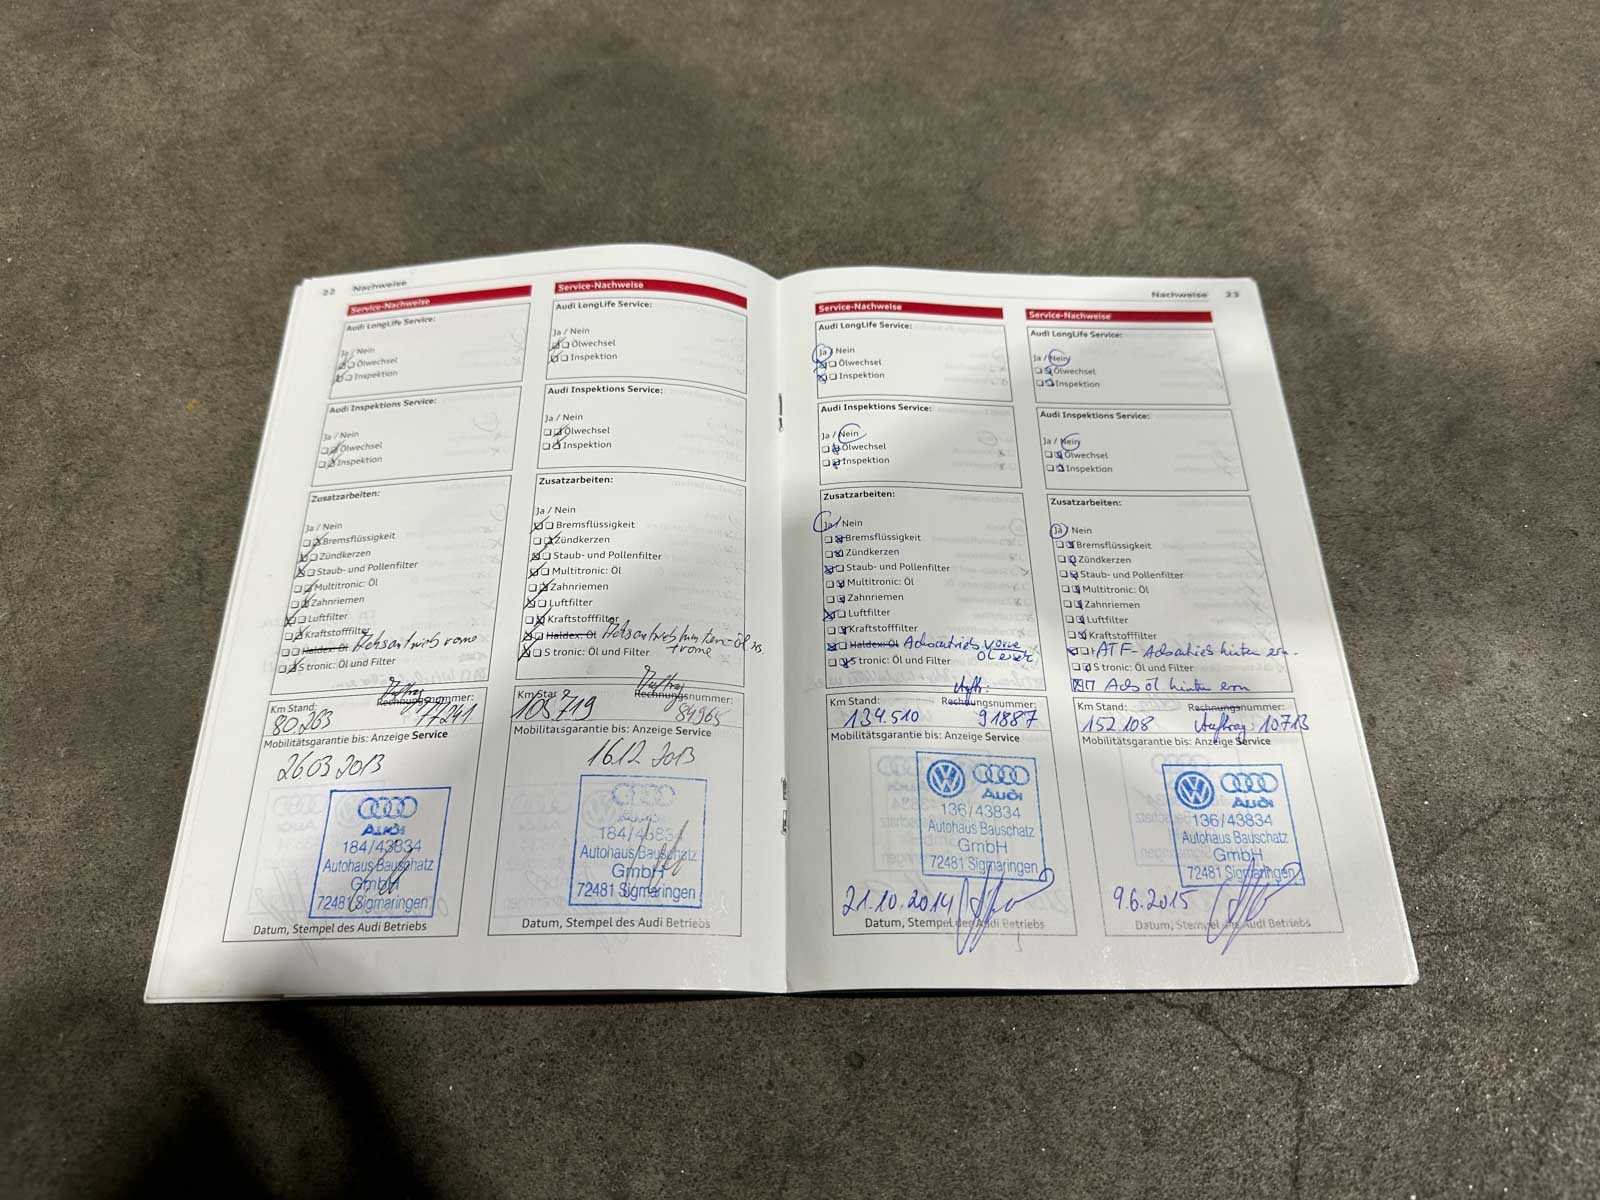 22 Nachweise
Service-Nachweise
Audi LongLife Service:
Ja / Nein
Ölwechsel
Inspektion
Audi Inspektions Service:
Ja / Nein
Ölwechsel
Inspektion
Zusatzarbeiten:
Ja / Nein
Bremsflüssigkeit
Zündkerzen
Staub- und Pollenfilter
Multitronic: Öl
Zahnriemen
Luftfilter
Kraftstofffilter
Haldex: Öl Achsantrieb vorne
S tronic: Öl und Filter
Auftrag
Km Stand: Rechnungsnummer:
80.263 77241
Mobilitätsgarantie bis: Anzeige Service
26 03 2013
Audi
184/43834
Autohaus Bauschatz
GmbH
72481 Sigmaringen
Datum, Stempel des Audi Betriebs
Service-Nachweise
Audi LongLife Service:
Ja / Nein
Ölwechsel
Inspektion
Audi Inspektions Service:
Ja / Nein
Ölwechsel
Inspektion
Zusatzarbeiten:
Ja / Nein
Bremsflüssigkeit
Zündkerzen
Staub- und Pollenfilter
Multitronic: Öl
Zahnriemen
Luftfilter
Kraftstofffilter
Haldex: Öl Achsantrieb hinten-Öl
+ vorne
S tronic: Öl und Filter
Auftrag
Km Stand Rechnungsnummer:
105.719 84965
Mobilitätsgarantie bis: Anzeige Service
16.12 2013
184/43834
Autohaus Bauschatz
GmbH
72481 Sigmaringen
Datum, Stempel des Audi Betriebs
Nachweise 23
Service-Nachweise
Audi LongLife Service:
Ja / Nein
Ölwechsel
Inspektion
Audi Inspektions Service:
Ja / Nein
Ölwechsel
Inspektion
Zusatzarbeiten:
Ja / Nein
Bremsflüssigkeit
Zündkerzen
Staub- und Pollenfilter
Multitronic: Öl
Zahnriemen
Luftfilter
Kraftstofffilter
Haldex: Öl Achsantrieb vorne
S tronic: Öl und Filter
Auftr.
Km Stand: Rechnungsnummer:
134.510 91887
Mobilitätsgarantie bis: Anzeige Service
Audi
136/43834
Autohaus Bauschatz
GmbH
72481 Sigmaringen
21.10.2014
Datum, Stempel des Audi Betriebs
Service-Nachweise
Audi LongLife Service:
Ja / Nein
Ölwechsel
Inspektion
Audi Inspektions Service:
Ja / Nein
Ölwechsel
Inspektion
Zusatzarbeiten:
Ja / Nein
Bremsflüssigkeit
Zündkerzen
Staub- und Pollenfilter
Multitronic: Öl
Zahnriemen
Luftfilter
Kraftstofffilter
ATF- Achsantrieb hinten ern.
S tronic: Öl und Filter
Achsöl hinten ern
Km Stand: Rechnungsnummer:
152.108 Auftrag: 10713
Mobilitätsgarantie bis: Anzeige Service
Audi
136/43834
Autohaus Bauschatz
GmbH
72481 Sigmaringen
9.6.2015
Datum, Stempel des Audi Betriebs